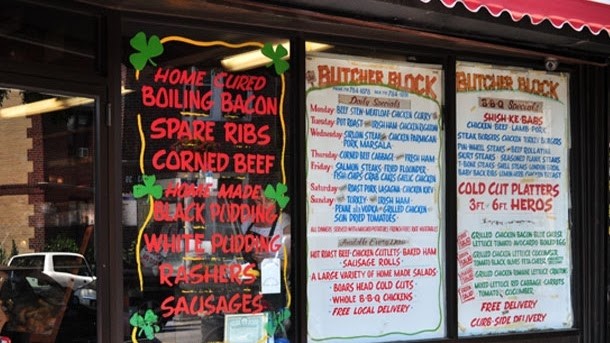 HOME CURED
BOILING BACON
SPARE RIBS
CORNED BEEF
HOME MADE
BLACK PUDDING
WHITE PUDDING
RASHERS
SAUSAGES
BUTCHER BLOCK
Daily Specials
Monday BEEF STEW-MEATLOAF-CHICKEN CURRY
Tuesday POT ROAST IRISH HAM CHICKEN
Wednesday SIRLOIN STEAK CHICKEN PARMAGIAN
PORK MARSALA
Thursday CORNED BEEF CABBAGE FRESH HAM
Friday SALMON STEAKS FRIED FLOUNDER
FISH CAKES CRAB CAKES GARLIC CHICKEN
Saturday ROAST PORK LASAGNA CHICKEN KIEV
Sunday TURKEY IRISH HAM
PENNE alla VODKA GRILLED CHICKEN
SUN DRIED TOMATOES
ALL DINNERS SERVED WITH
Available Everyday
HOT ROAST BEEF CHICKEN CUTLETS-BAKED HAM
SAUSAGE ROLLS
A LARGE VARIETY OF HOME MADE SALADS
BOARS HEAD COLD CUTS
WHOLE B-B-Q CHICKENS
FREE LOCAL DELIVERY
BUTCHER BLOCK
B-B-Q Specials
SHISH KE BABS
CHICKEN BEEF LAMB PORK
STEAK BURGERS CHICKEN TURKEY BURGERS
PIN WHEEL STEAKS BEEF
SKIRT STEAKS SEASONED FLANK STEAKS
T-BONE STEAKS SHELL STEAKS LONDON BROIL
BABY BACK RIBS
COLD CUT PLATTERS
3FT & 6FT HEROS
GRILLED CHICKEN BACON BLUE CHEESE
LETTUCE TOMATO AVOCADO BOILED EGG
GRILLED CHICKEN LETTUCE CUCUMBER
TOMATO BLACK OLIVES
GRILLED CHICKEN ROMAINE LETTUCE
MIXED LETTUCE RED CABBAGE CARROTS
TOMATO CUCUMBER
FREE DELIVERY
or
CURB-SIDE DELIVERY